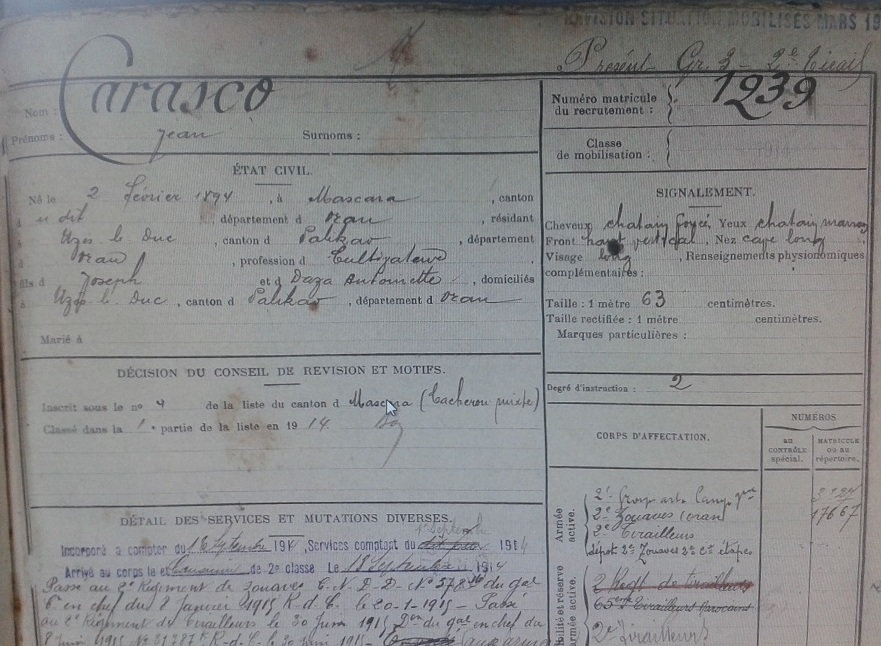 REVISION SITUATION MOBILISÉS MARS 19
Présent Gr. 3 - 2e Tirail
Nom : Carasco
Prénoms : Jean Surnoms :
Numéro matricule du recrutement : 1239
Classe de mobilisation :
ÉTAT CIVIL.
Né le 2 février 1894, à Mascara, canton
du dit, département d'Oran, résidant
à Uzès le Duc, canton d Palikao, département
d Oran, profession d Cultivateur
fils d Joseph et d Daza Antoinette, domiciliés
à Uzès-le-Duc, canton d Palikao, département d Oran
Marié à
SIGNALEMENT.
Cheveux chatain foncé, Yeux chatain marron
Front haut vertical, Nez cave long
Visage long, Renseignements physionomiques
complémentaires :
Taille : 1 mètre 63 centimètres.
Taille rectifiée : 1 mètre centimètres.
Marques particulières :
Degré d'instruction : 2
DÉCISION DU CONSEIL DE REVISION ET MOTIFS.
Inscrit sous le no 4 de la liste du canton d Mascara (Cacherou mixte)
Classé dans la 1e partie de la liste en 1914.
CORPS D'AFFECTATION.
NUMÉROS
AU CONTRÔLE SPÉCIAL.
MATRICULE OU AU RÉPERTOIRE.
Armée active.
2e Group art Camp
2e Zouaves (Oran) 17667
2e Tirailleurs
dépôt 2e Zouaves 2e Cie étapes
2 Regt de tirailleurs
65 Tirailleurs marocains
2e Tirailleurs
DÉTAIL DES SERVICES ET MUTATIONS DIVERSES.
1er Septembre
Incorporé à compter du 1er Septembre 1914, Services comptant du 1914
Arrivé au corps le et Canonnier de 2e classe Le 13 Septembre 1914
Passé au 2e Régiment de Zouaves C. N. D. D. No 578 du gal
Ct en chef du 8 Janvier 1915 R. d. C. le 20-1-1915 - Passé
au 2e Régiment de tirailleurs le 30 Juin 1915 Don du gal en chef du
8 Juin 1915 No 31787 R. d. C. le 30 juin 1915